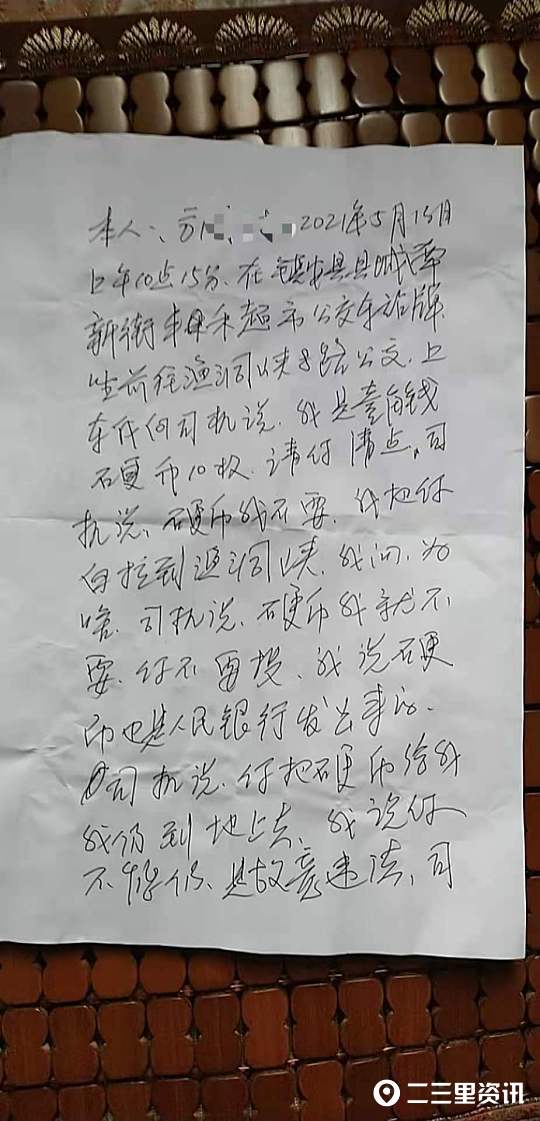 本人、方 2021年5月13日
上午10点15分、在镇坪县县城
新街 果禾超市公交车站牌
坐前往渔洞峡8路公交、上
车后向司机说、我是壹角钱
硬币10枚、请你清点、司
机说、硬币我不要、我把你
白拉到渔洞峡、我问、为
啥、司机说、硬币我就不
要、你不要投、我说硬
币也是人民银行发出来的、
司机说、你把硬币给我
我仍到地上去、我说你
不得仍、是故意违法、司
二三里资讯